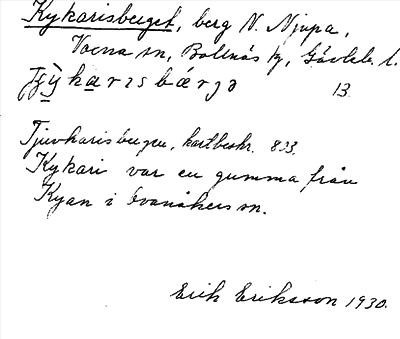 Kykarisberget, berg N. Njupa,
Voxna sn, Bollnäs tg, Gävleb. l.
13
Tjuvharisbergen, kartbeskr. 833.
Kykari var en gumma från
Kyan i Ovanåkers sn.
Erik Eriksson 1930.